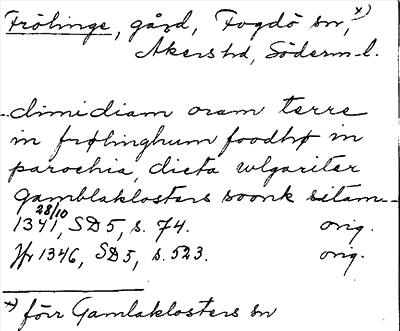 Frölinge, gård, Fogdö sn, x)
Åkers hd, Söderm. l.
-dimidiam oram terre
in frølinghum foodhø in
parochia, dicta wlgariter
Gamblaklosters soonk sitam--
28/10
1341, SD 5, s. 74. orig.
Jfr 1346, SD 5, s. 523. orig.
x) förr Gamlaklosters sn